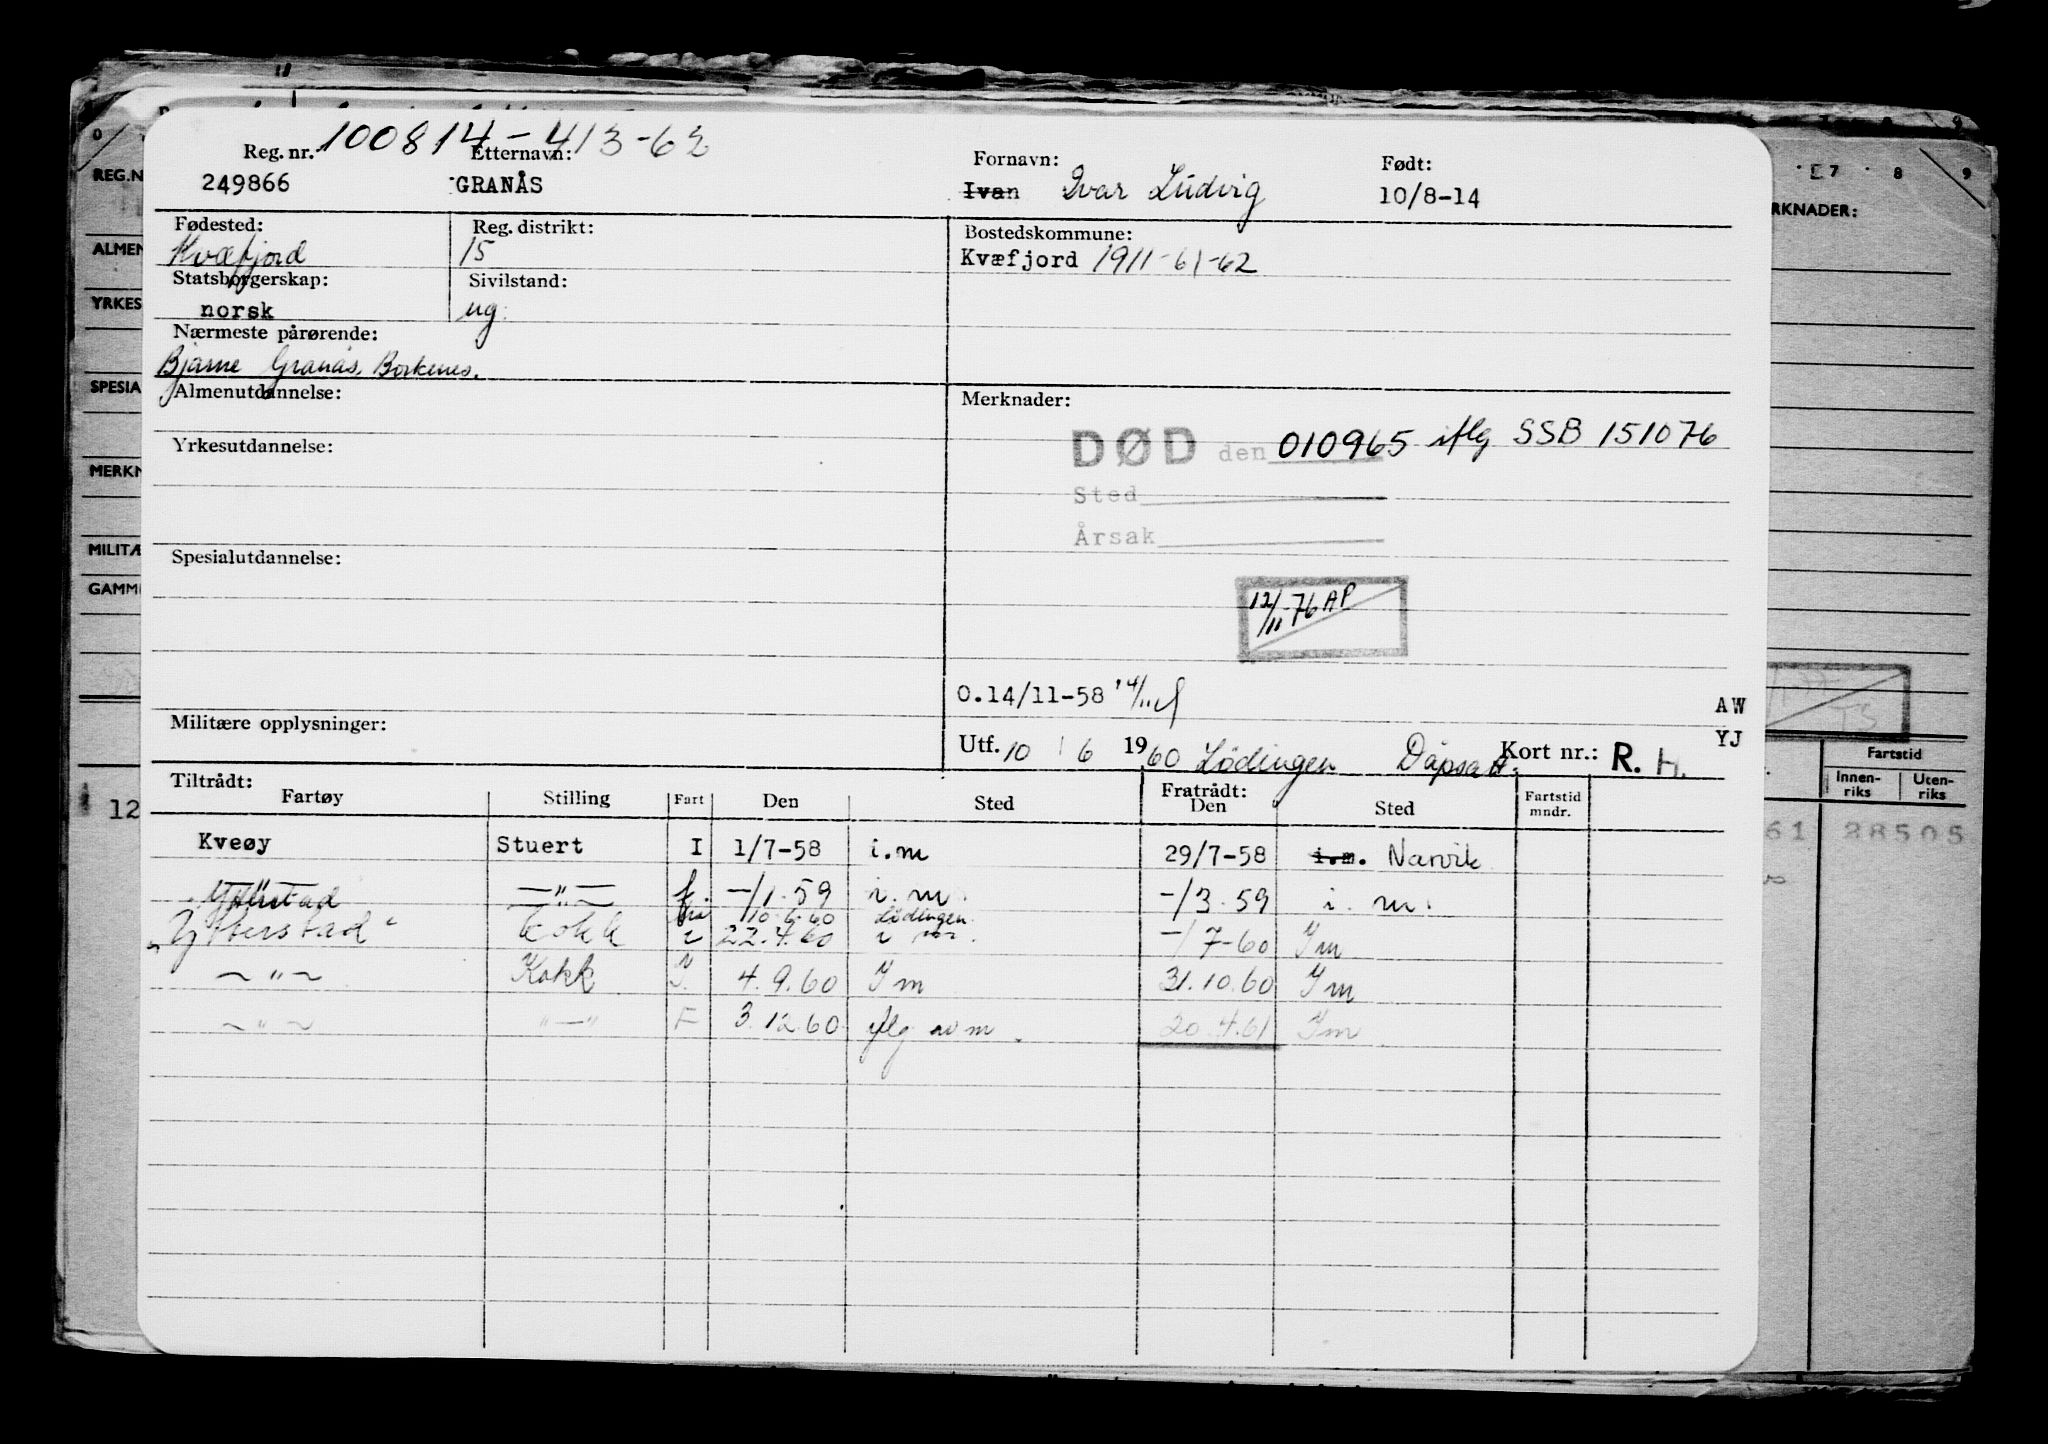 100814-413-62
Reg. nr. Etternavn: Fornavn: Født:
249866 GRANÅS Ivan Ivar Ludvig 10/8-14
Fødested: Reg. distrikt: Bostedskommune:
Kvæfjord 15 Kvæfjord 1911-61-62
Statsborgerskap: Sivilstand:
norsk ug.
Nærmeste pårørende:
Bjarne Granås, Borkenes.
Almenutdannelse: Merknader:
DØD den 010965 iflg SSB 151076
Yrkesutdannelse:
Sted
Årsak
Spesialutdannelse:
12/11-76 AP
O.14/11-58 14/11
AW
Militære opplysninger:
YJ
Utf. 10/6 1960 Lödingen Dåpsatt. Kort nr.: R. H.
Tiltrådt: Fratrådt:
Fartøy Stilling Fart Den Sted Den Sted Fartstid mndr.
Kveøy Stuert I 1/7-58 i.m 29/7-58 i.m. Narvik
—"— f. -/1-59 i.m. -/3-59 i.m.
10.6.60 Lödingen
"Ytterstad" kokk i 22.4.60 -/7-60 Im
—"— Kokk 4.9.60 Im 31.10.60 Im
—"— "—" F 3.12.60 iflg av m 20.4.61 Im
REG.N
ALMEN
YRKES
SPESIA
MERKN
MILITÆ
GAMM
12
7 8 9
RKNADER:
Fartstid
Innen-riks Uten-riks
61 28505